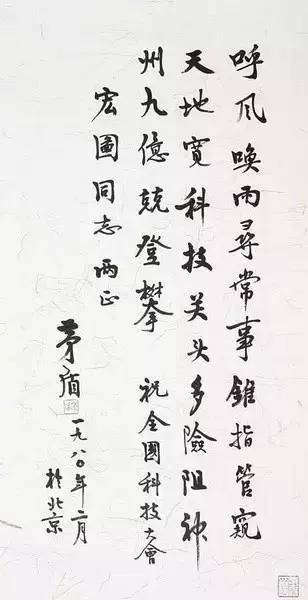 呼风唤雨寻常事錐指管窺
天地寛科技关头多險阻神
州九億競登攀 祝全国科技大會
宏圖同志 两正
茅盾 一九八〇年二月
於北京